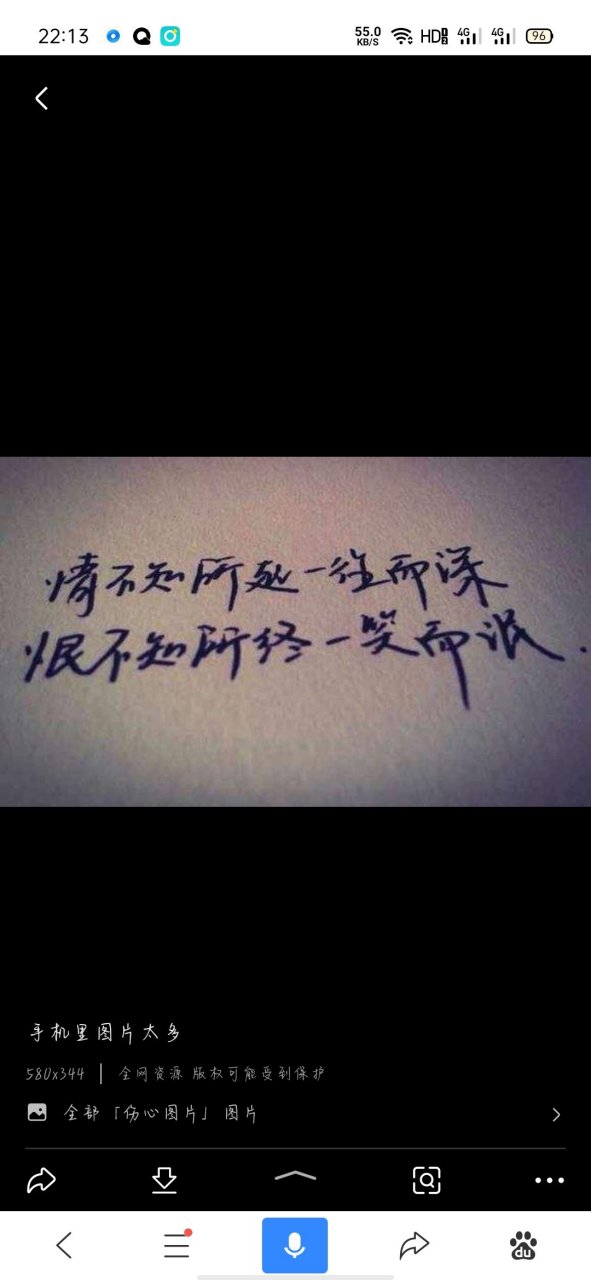 22:13
55.0
KB/S
HD
4G
4G
96
情不知所起一往而深
恨不知所终一笑而泯.
手机里图片太多
580x344 | 全网资源 版权可能受到保护
全部「伤心图片」图片
du